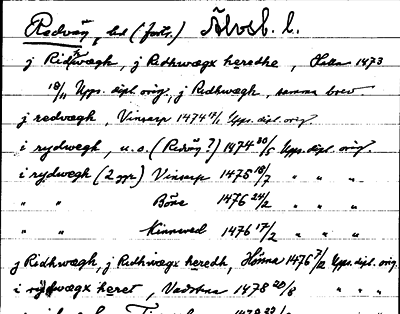 Redväg, hd (forts.) Älvsb. l.
j Ridhwægh, j Redhwægx heredhe, 1473
18/11 Upps. dipl. orig., j Redhwægh, samma brev
j redvægh, Vinsarp 1474 Upps. dipl. orig.
i rydwegh, u.o. (Redväg?) 1474 30/5 Upps. dipl. orig.
i rydwegh (2 ggr) Vinsarp 1475 18/7 " " "
" " Böne 1476 24/2 " " "
" " Kinnared 1476 17/2 " " "
j Redhwægh, j Redhwægx heredh, Hössna 1476 7/12 Upps. dipl. orig.
heret, Vadstena 1478 20/8 " " "